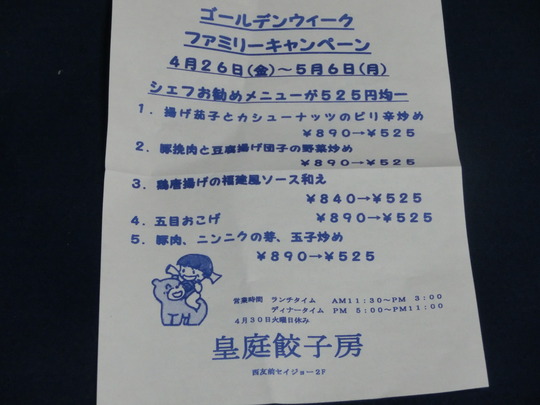 ゴールデンウイーク
ファミリーキャンペーン
4月26日(金)～5月6日(月)
シェフお勧めメニューが525円均一
1．揚げ茄子とカシューナッツのピリ辛炒め
￥890→￥525
2．豚挽肉と豆腐揚げ団子の野菜炒め
￥890→￥525
3．鶏唐揚げの福建風ソース和え
￥840→￥525
4．五目おこげ ￥890→￥525
5．豚肉、ニンニクの芽、玉子炒め
￥890→￥525
営業時間 ランチタイム AM11:30～PM 3:00
ディナータイム PM 5:00～PM11:00
4月30日火曜日休み
皇庭餃子房
西友前セイジョー2F